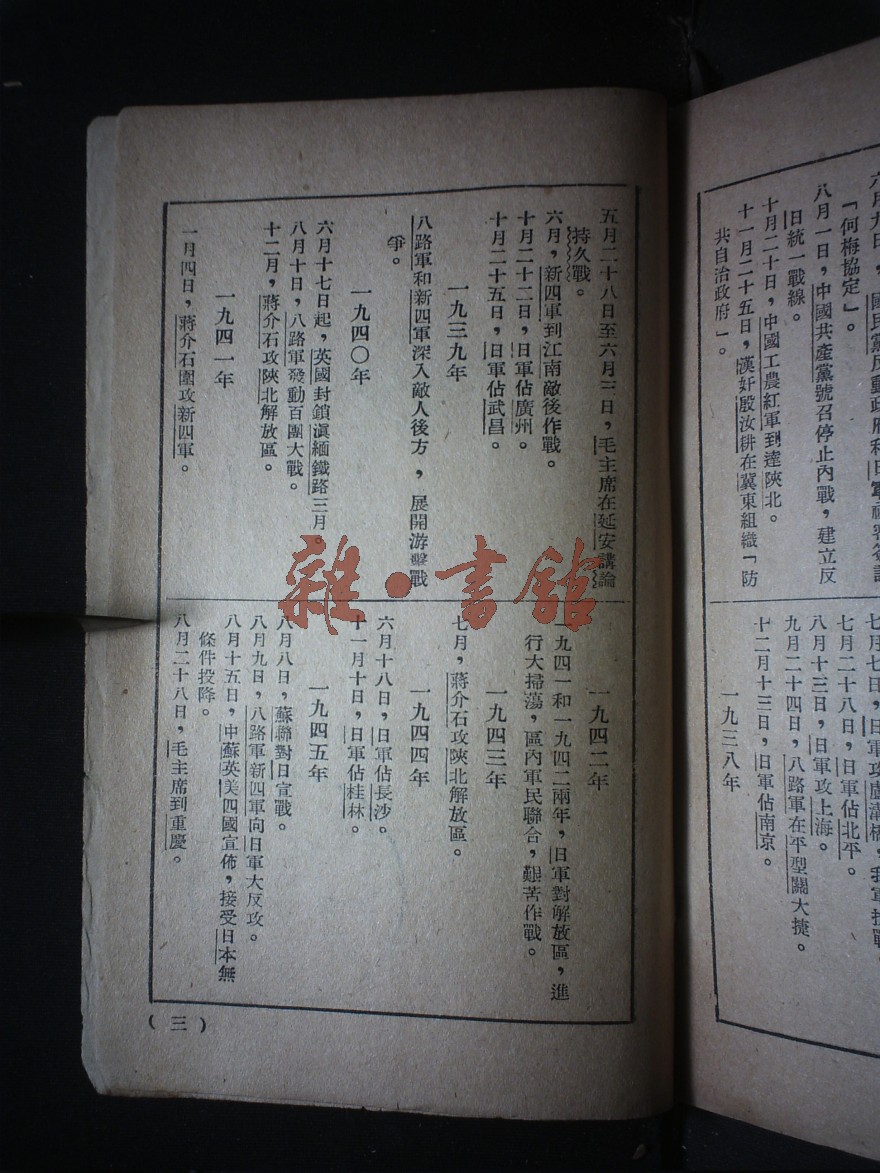 「何梅協定」。
八月一日，中國共產黨號召停止內戰，建立反
日統一戰線。
十月二十日，中國工農紅軍到達陝北。
十一月二十五日，漢奸殷汝耕在冀東組織「防
共自治政府」。
七月二十八日，日軍佔北平。
八月十三日，日軍攻上海。
九月二十四日，八路軍在平型關大捷。
十二月十三日，日軍佔南京。
一九三八年
五月二十八日至六月三日，毛主席在延安講論
持久戰。
六月，新四軍到江南敵後作戰。
十月二十二日，日軍佔廣州。
十月二十五日，日軍佔武昌。
一九三九年
八路軍和新四軍深入敵人後方，展開游擊戰
爭。
一九四〇年
六月十七日起，英國封鎖滇緬鐵路三月。
八月十日，八路軍發動百團大戰。
十二月，蔣介石攻陝北解放區。
一九四一年
一月四日，蔣介石圍攻新四軍。
一九四二年
一九四一和一九四二兩年，日軍對解放區，進
行大掃蕩，區內軍民聯合，艱苦作戰。
一九四三年
七月，蔣介石攻陝北解放區。
一九四四年
六月十八日，日軍佔長沙。
十一月十日，日軍佔桂林。
一九四五年
八月八日，蘇聯對日宣戰。
八月九日，八路軍新四軍向日軍大反攻。
八月十五日，中蘇英美四國宣佈，接受日本無
條件投降。
八月二十八日，毛主席到重慶。
（三）
雜·書館